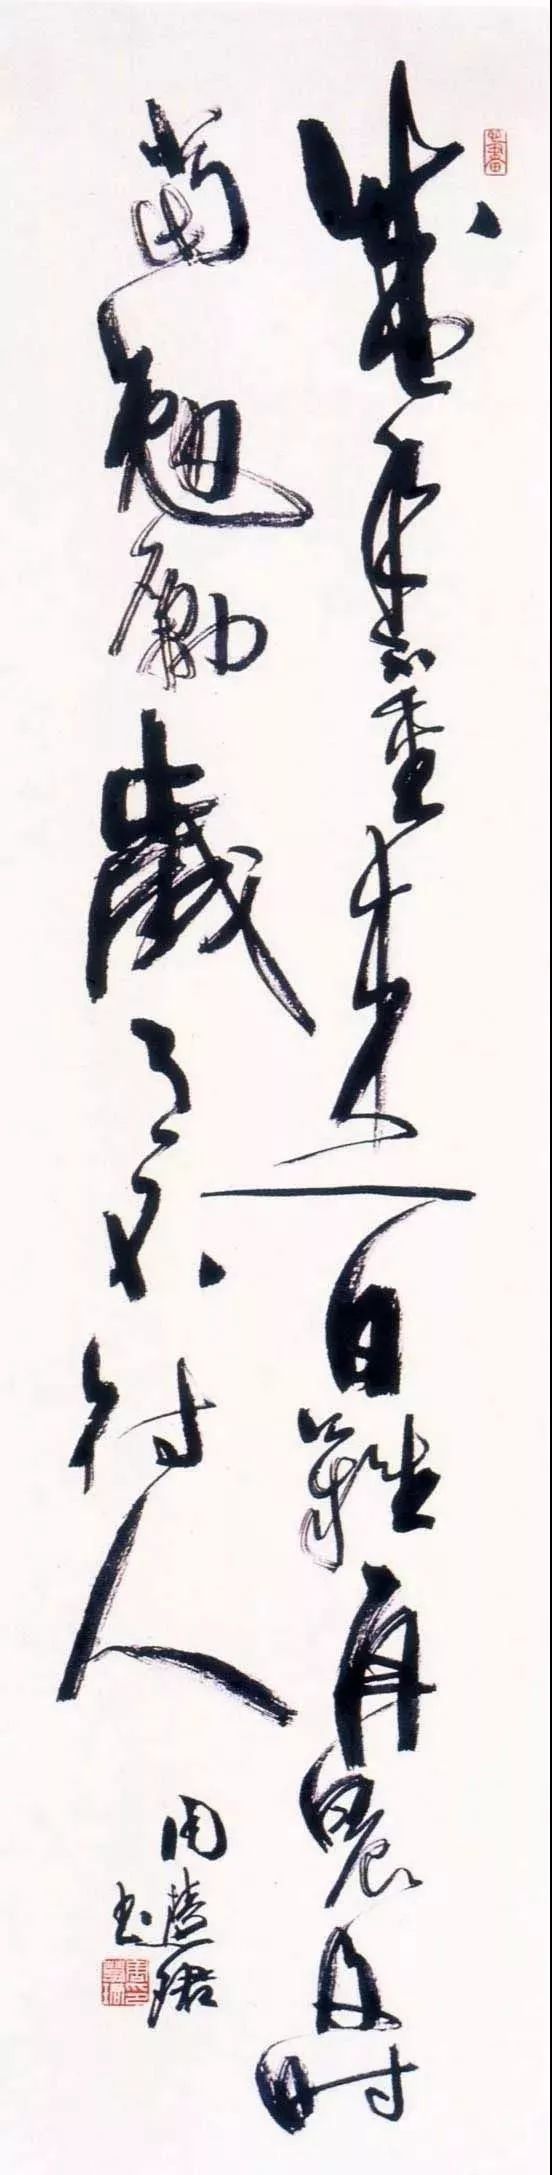 盛年不重来一日难再晨及时
当勉励岁月不待人
周慧珺
书